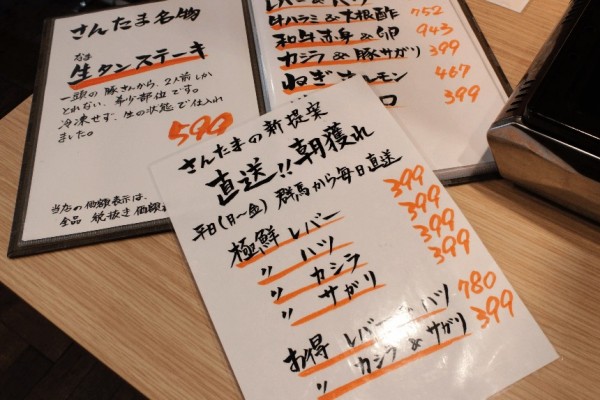 さんたま名物
なま
生タンステーキ
一頭の豚さんから、2人前しか
とれない、希少部位です。
冷凍せず、生の状態で仕入れ
ました。
599
当店の価額表示は、
全品 税抜き価額
レバー & ハツ
牛ハラミ & 大根酢 752
和牛赤身 & 卵 943
カシラ & 豚サガリ 399
ねぎ レモン 467
399
さんたまの新提案
直送!!朝獲れ
平日(月~金) 群馬から毎日直送
極鮮 レバー 399
〃 ハツ 399
〃 カシラ 399
〃 サガリ 399
お得 レバー & ハツ 780
〃 カシラ & サガリ 399